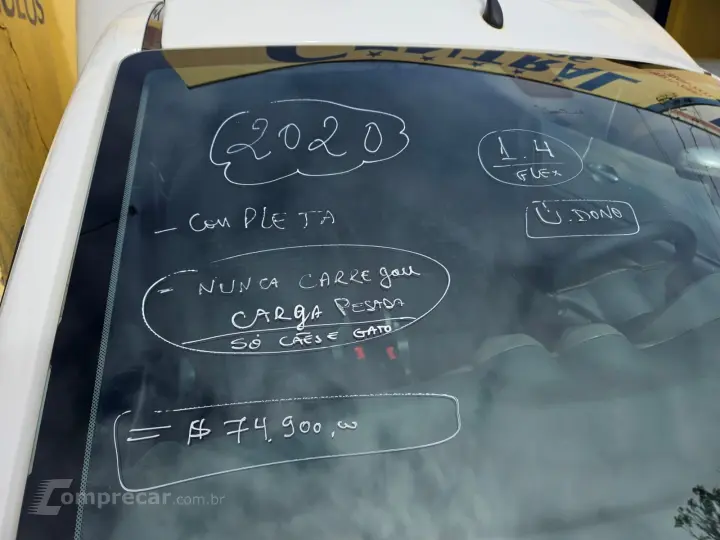 CENTRAL
2020
1.4
FLEX
- COMPLETA
Ü. DONO
- NUNCA CARREGOU
CARGA PESADA
SÓ CÃES E GATO
= $ 74.900,00
Comprecar.com.br